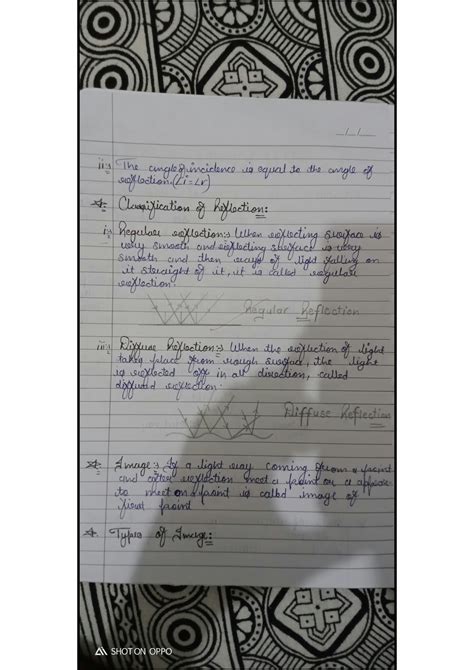 _/_/_
ii:- The angle of incidence is equal to the angle of
reflection. (∠i=∠r)
Classification of Reflection:
i:- Regular reflection:- When reflecting surface is
very smooth and reflecting surface is very
smooth and then rays of light falling on
it straight of it, it is called regular
reflection.
Regular Reflection
ii:- Diffuse Reflection:- When the reflection of light
takes place from rough surface, the light
is reflected off in all direction, called
diffused reflection.
Diffuse Reflection
Image:- If a light ray coming from a point
and after reflection meet a point or a appear
to meet on a point is called image of
first point
Types of Image:
SHOT ON OPPO